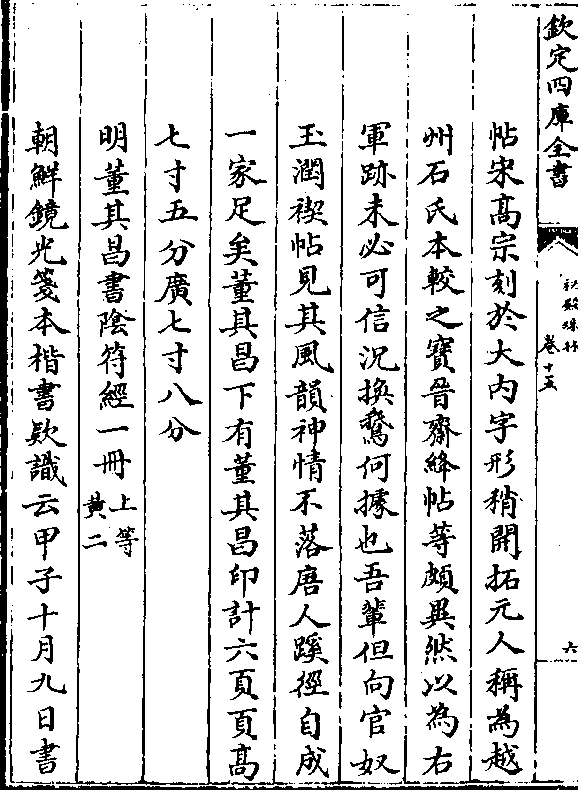 欽定四庫全書
秘殿珠林
卷十五
六
帖宋髙宗刻於大内字形稍開拓元人稱為越
州石氏本較之寶晉齋絳帖等頗異然以為右
軍跡未必可信況換鵞何據也吾輩但向官奴
玉潤禊帖見其風韻神情不落唐人蹊徑自成
一家足矣董其昌下有董其昌印計六頁頁髙
七寸五分廣七寸八分
明董其昌書陰符經一冊 上等
黄二
朝鮮鏡光箋本楷書欵識云甲子十月九日書